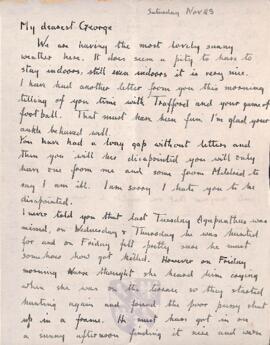 Saturday Nov 23
My dearest George
We are having the most lovely sunny
weather here. It does seem a pity to have to
stay indoors, still even indoors it is very nice.
I have had another letter from you this morning
telling of you time with Trafford and your game of
football. That must have been fun I'm glad your
ankle behaved well.
You have had a long gap without letters and
then you will be disapointed you will only
have one from me and some from Mildred to
say I am ill. I am sorry I hate you to be
disapointed.
I told you that last Tuesday Agapanthus was
missed, on Wednesday & Thursday he was hunted
for and on Friday felt pretty sure he must
some how got killed. However on Friday
morning Nurse thought she heard him crying
when she was on the terrace so they started
hunting again and found the poor pussy shut
up in a frame. He must have got in on
a sunny afternoon finding it nice and warm